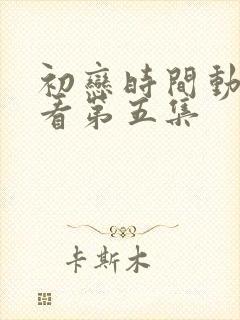 初戀時間動
看第五集
卡斯木